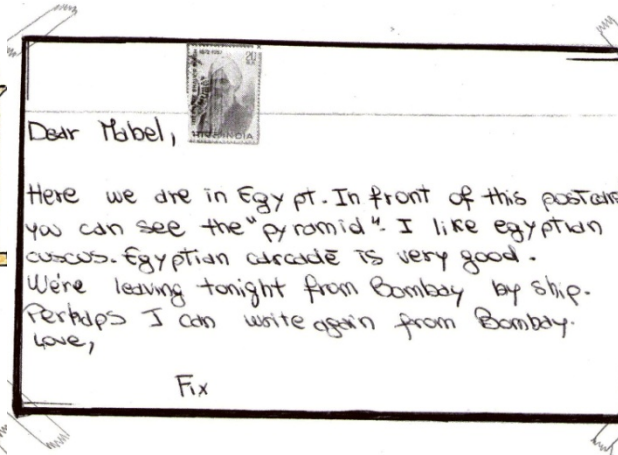 20
INDIA
Dear Mabel,
Here we are in Egypt. In front of this postcard
you can see the "pyramid". I like egyptian
cuscus. Egyptian arcade is very good.
We're leaving tonight from Bombay by ship.
Perhaps I can write again from Bombay.
Love,
Fix